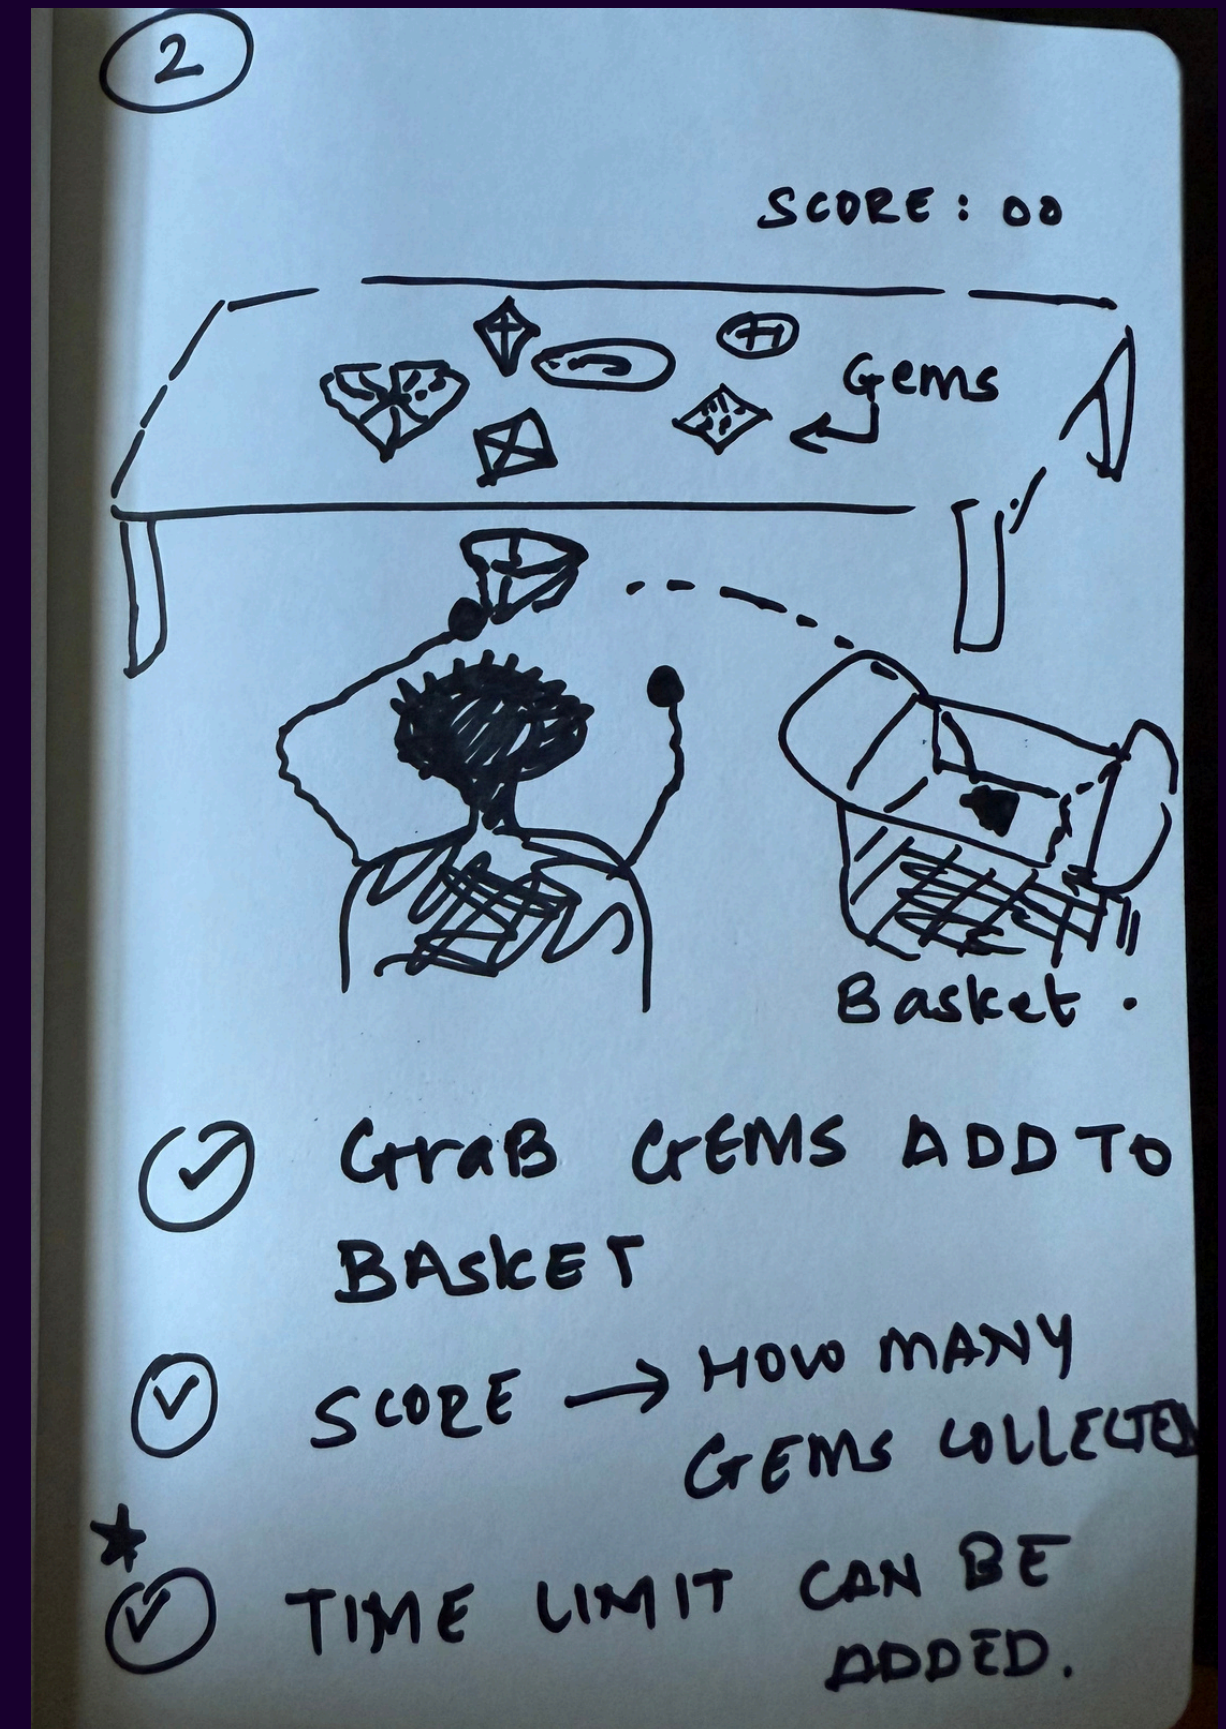 2
SCORE: 00
Gems
Basket.
GraB GEMS ADD TO
BASKET
SCORE → HOW MANY
GEMS COLLECTED
TIME LIMIT CAN BE
ADDED.